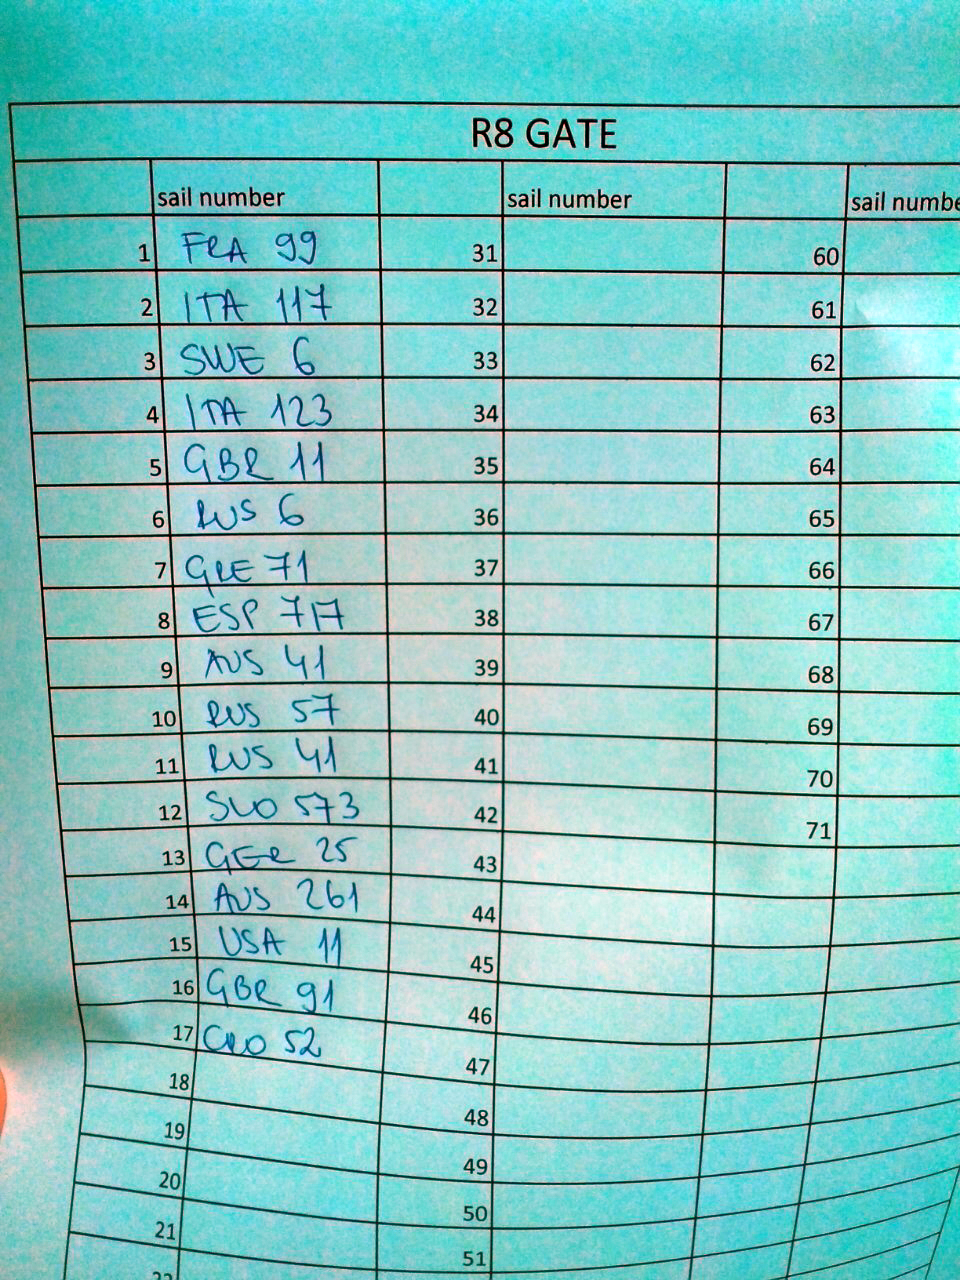 R8 GATE
sail number sail number sail numbe
1 FRA 99 31 60
2 ITA 117 32 61
3 SWE 6 33 62
4 ITA 123 34 63
5 GBR 11 35 64
6 RUS 6 36 65
7 GRE 71 37 66
8 ESP 717 38 67
9 AUS 41 39 68
10 RUS 57 40 69
11 RUS 41 41 70
12 SLO 573 42 71
13 GER 25 43
14 AUS 261 44
15 USA 11 45
16 GBR 91 46
17 CRO 52 47
18 48
19 49
20 50
21 51